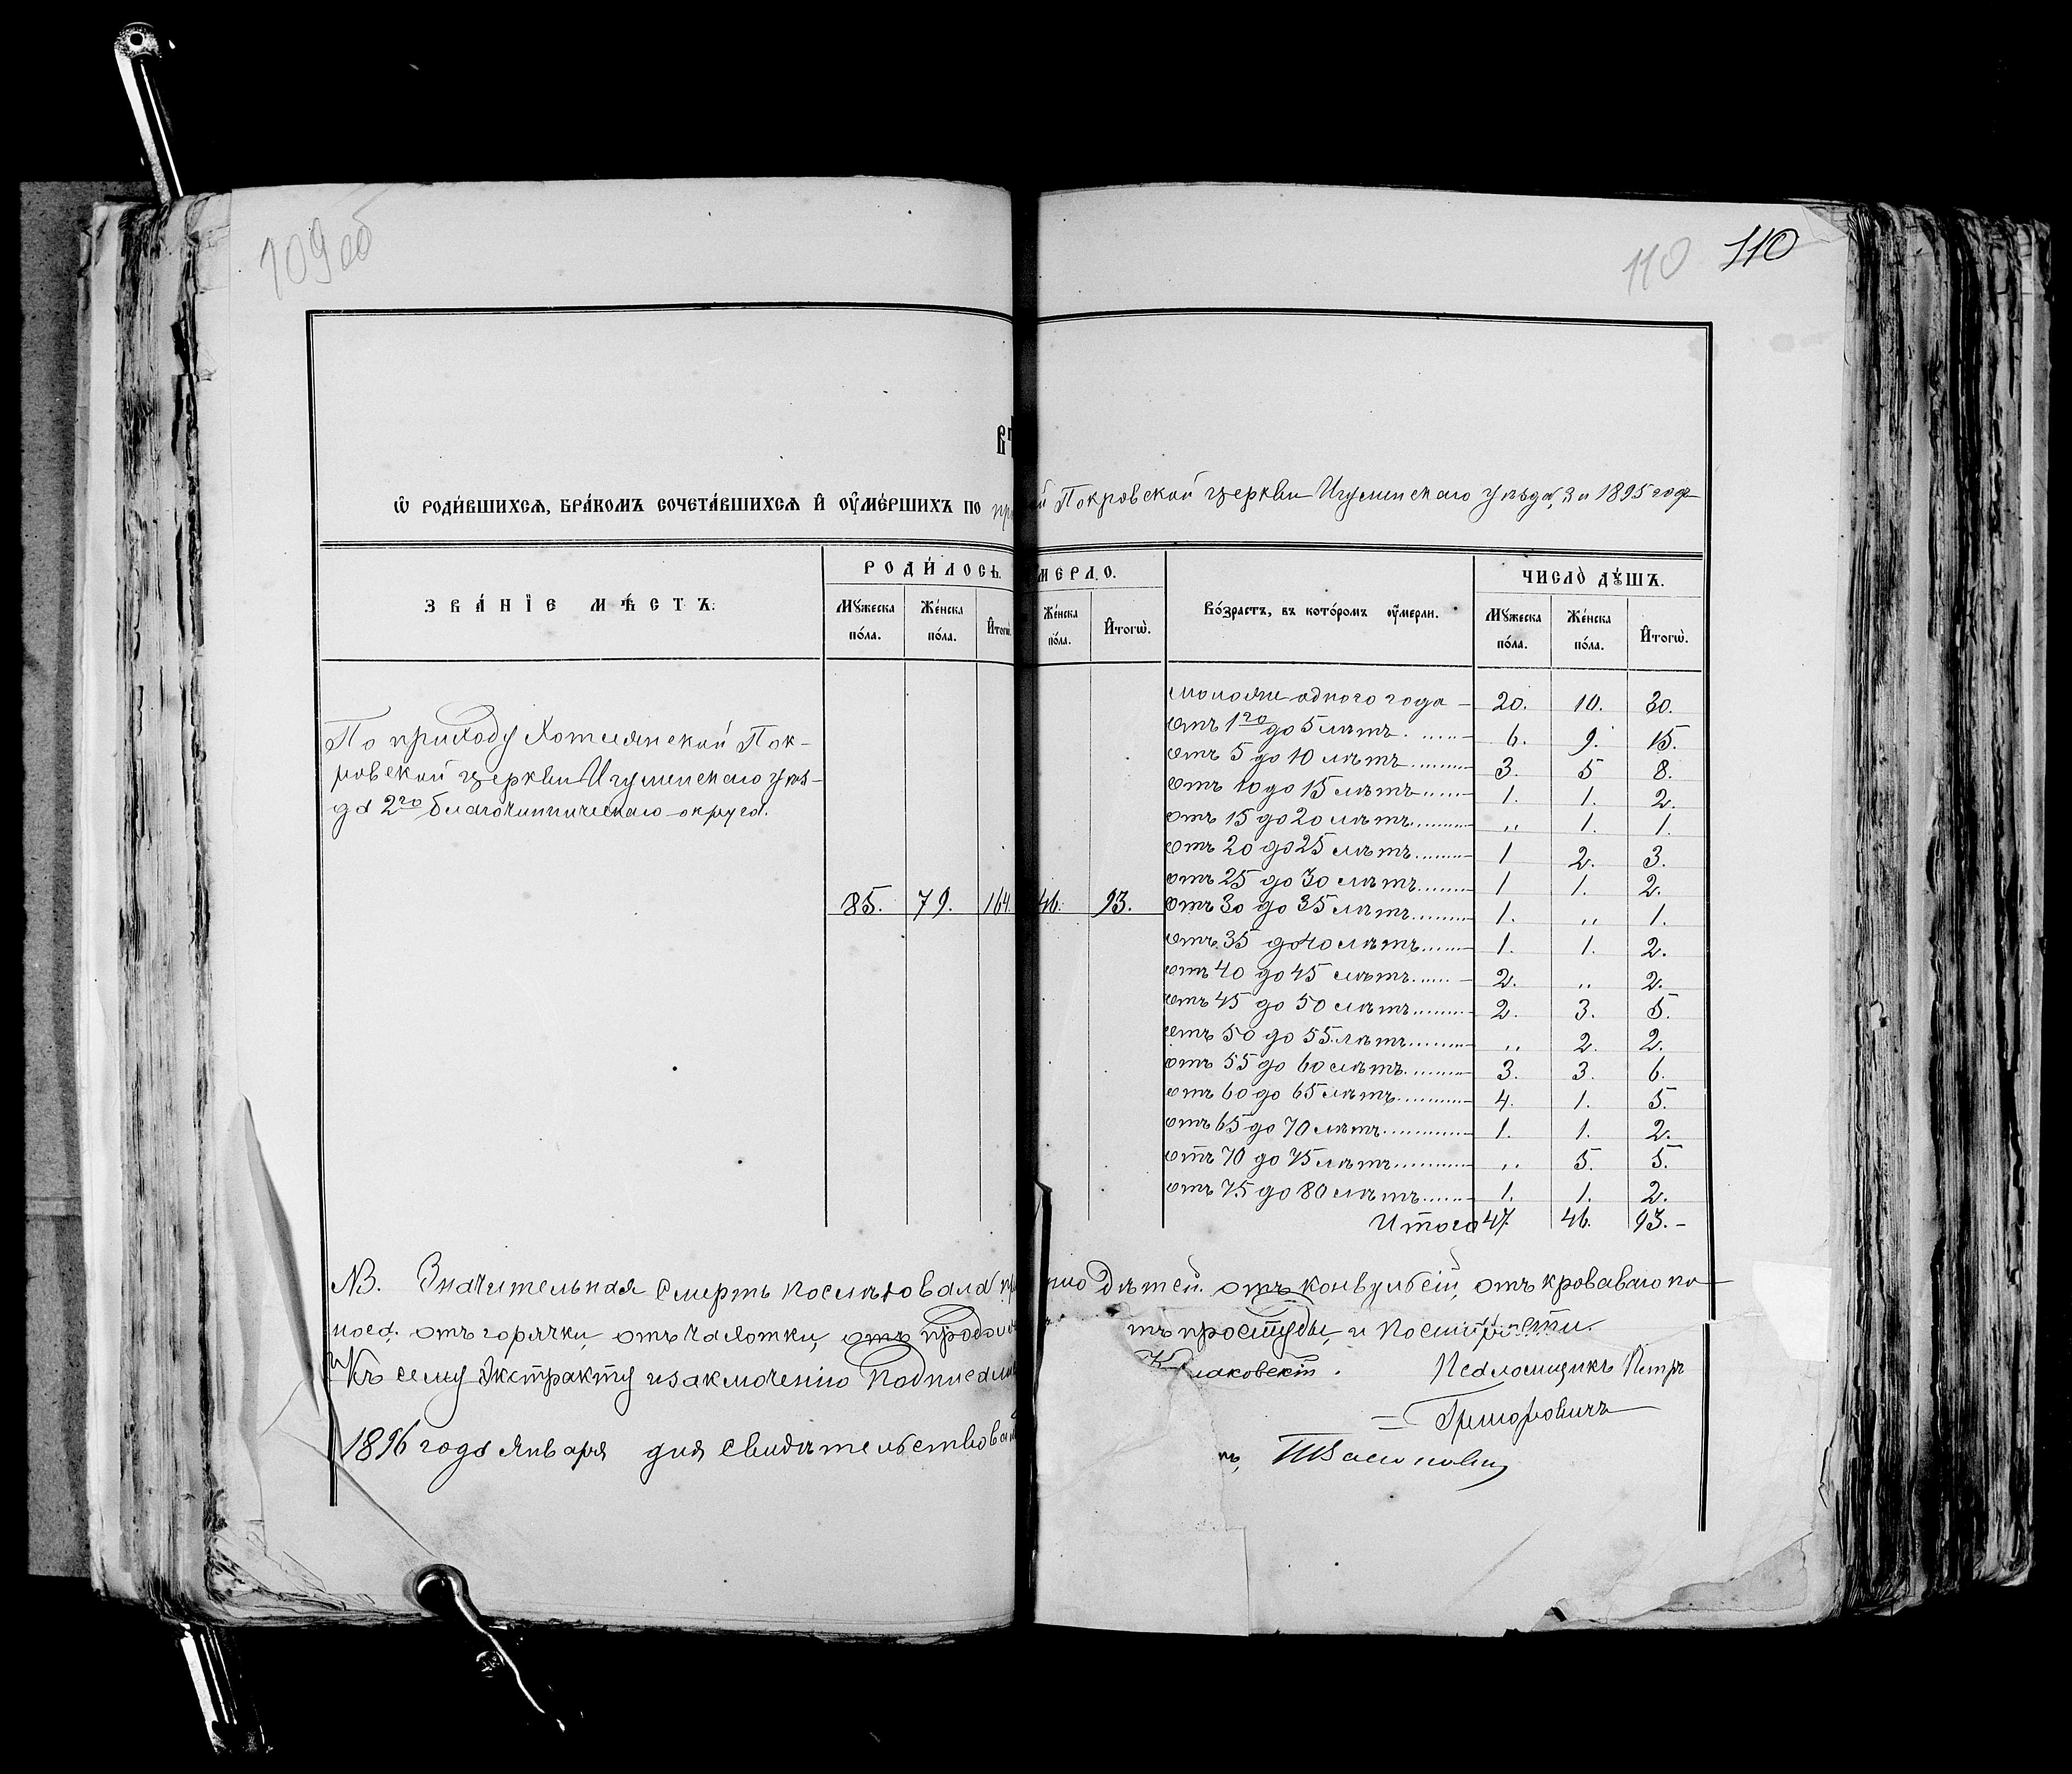 109 об
110 110
Ѡ РОДИ́ВШИХСѦ, БРА́КОМЪ СОЧЕТА́ВШИХСѦ И҆ ОУ҆МЕ́РШИХЪ ПО
Покровской церкви Игуменскаго уѣзда, за 1895 годъ
ЗВА́НІЕ МѢ́СТЪ.
РОДИ́ЛОСЬ.
МЕРЛО.
Во́зрастъ, въ кото́ромъ оу҆́мерли.
ЧИСЛО̀ ДꙊ́ШЪ.
Мꙋ́жеска по́ла. Же́нска по́ла. И҆тогѡ̀.
Же́нска по́ла. И҆тогѡ̀.
Мꙋ́жеска по́ла. Же́нска по́ла. И҆тогѡ̀.
По приходу Хотлянской Пок-
ровской церкви Игуменскаго уѣз-
да 2го благочинническаго округа.
85. 79. 164. 46. 93.
моложе одного года - 20. 10. 30.
отъ 1го до 5 лѣтъ. ...... 6. 9. 15.
отъ 5 до 10 лѣтъ......... 3. 5 8.
отъ 10 до 15 лѣтъ...... 1. 1. 2.
отъ 15 до 20 лѣтъ......... „ 1. 1.
отъ 20 до 25 лѣтъ........ 1 2. 3.
отъ 25 до 30 лѣтъ........ 1 1. 2.
отъ 30 до 35 лѣтъ......... 1. „ 1.
отъ 35 до 40 лѣтъ....... 1. 1. 2.
отъ 40 до 45 лѣтъ...... 2. „ 2.
отъ 45 до 50 лѣтъ......... 2. 3. 5.
отъ 50 до 55 лѣтъ......... „ 2. 2.
отъ 55 до 60 лѣтъ.......... 3. 3. 6.
отъ 60 до 65 лѣтъ............ 4. 1. 5.
отъ 65 до 70 лѣтъ............. 1. 1. 2.
отъ 70 до 75 лѣтъ............ „ 5. 5.
отъ 75 до 80 лѣтъ....... 1. 1. 2.
Итого 47 46. 93.-
NB. Значительная смерть послѣдовала дѣтей. отъ конвульсій, отъ кроваваго по-
носа, отъ горячки, отъ чахотки, отъ тъ простуды, и
Къ сему Экстракту и заключенію подписали Псаломщикъ Петръ
Григоровичъ
1896 года Января дня свидѣтельствова